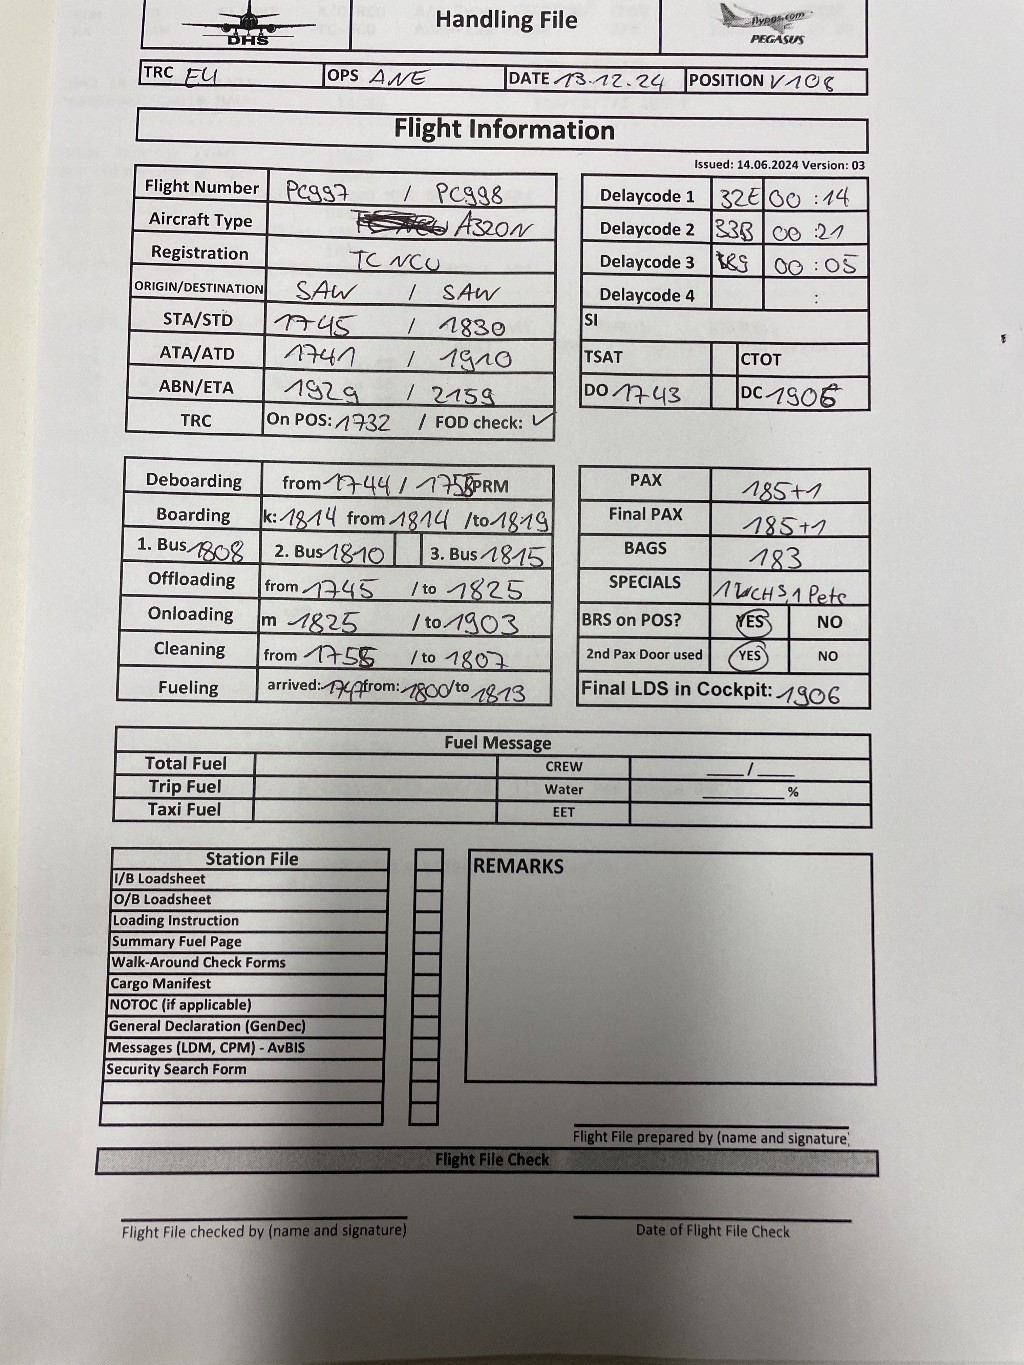 DHS
Handling File
flypgs.com
PEGASUS
TRC EU OPS ANE DATE 13.12.24 POSITION V108
Flight Information
Issued: 14.06.2024 Version: 03
Flight Number PC997 / PC998
Aircraft Type A320N
Registration TC NCU
ORIGIN/DESTINATION SAW / SAW
STA/STD 1745 / 1830
ATA/ATD 1741 / 1910
ABN/ETA 1929 / 2159
TRC On POS: 1732 / FOD check: ✓
Delaycode 1 32E 00 : 14
Delaycode 2 33B 00 : 21
Delaycode 3 00 : 05
Delaycode 4 :
SI
TSAT CTOT
DO 1743 DC 1906
Deboarding from 1744 / 1758 PRM
Boarding k: 1814 from 1814 /to 1819
1. Bus 1808 2. Bus 1810 3. Bus 1815
Offloading from 1745 / to 1825
Onloading m 1825 / to 1903
Cleaning from 1755 / to 1807
Fueling arrived: 1747 from: 1800/to 1813
PAX 185+1
Final PAX 185+1
BAGS 183
SPECIALS 1 WCHS, 1 Petc
BRS on POS? YES NO
2nd Pax Door used YES NO
Final LDS in Cockpit: 1906
Fuel Message
Total Fuel CREW ___/___
Trip Fuel Water ________%
Taxi Fuel EET
Station File
I/B Loadsheet
O/B Loadsheet
Loading Instruction
Summary Fuel Page
Walk-Around Check Forms
Cargo Manifest
NOTOC (if applicable)
General Declaration (GenDec)
Messages (LDM, CPM) - AvBIS
Security Search Form
REMARKS
Flight File prepared by (name and signature)
Flight File Check
Flight File checked by (name and signature)
Date of Flight File Check